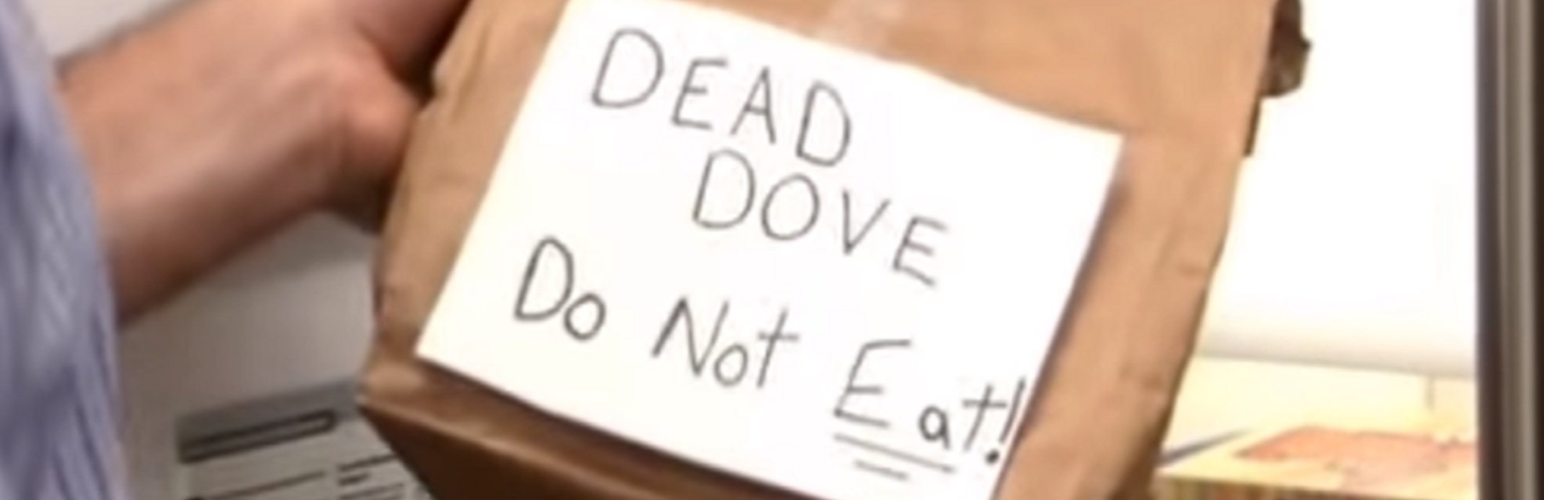 DEAD
DOVE
Do Not Eat!